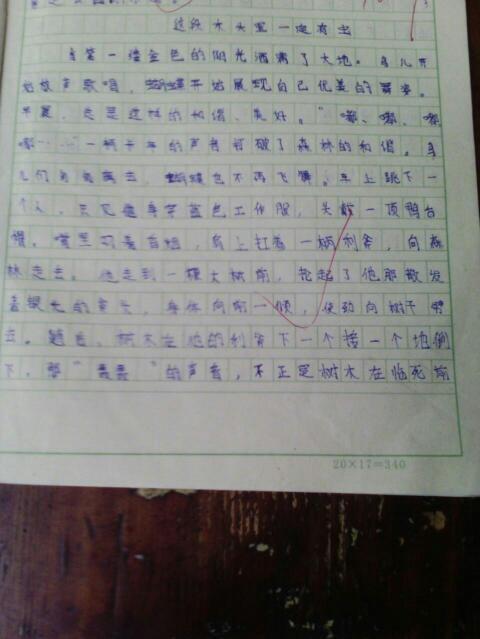 这段木头里一定有虫
当第一缕金色的阳光洒满了大地。鸟儿开
始放声歌唱，蝴蝶开始展现自己优美的舞姿。
早晨，总是这样的和谐、美好。"嘟、嘟、嘟
嘟……"一辆卡车的声音打破了森林的和谐。鸟
儿们离去，蝴蝶也不再飞舞。车上跳下一
个人，只见他身穿蓝色工作服，头戴一顶鸭舌
帽。嘴里叼着香烟，肩上扛着一柄利斧，向森
林走去。他走到一棵大树前，抡起了他那散发
着银光的斧头，身体向前一倾，使劲向树干劈
去。随后，树木在他的利斧下一个接一个地倒
下，那"轰轰"的声音，不正是树木在临死前
20×17=340